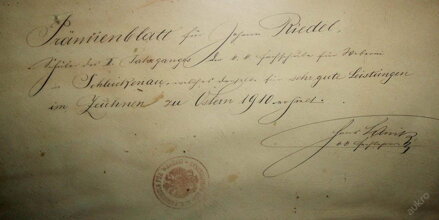 Prämienblatt für Johann Riedel,
Schüler des I. Jahrganges der k. k. Fachschule für Weberei
in Schluckenau, welches derselbe für sehr gute Leistungen
im Zeichnen zu Ostern 1910 erhielt.
aukro